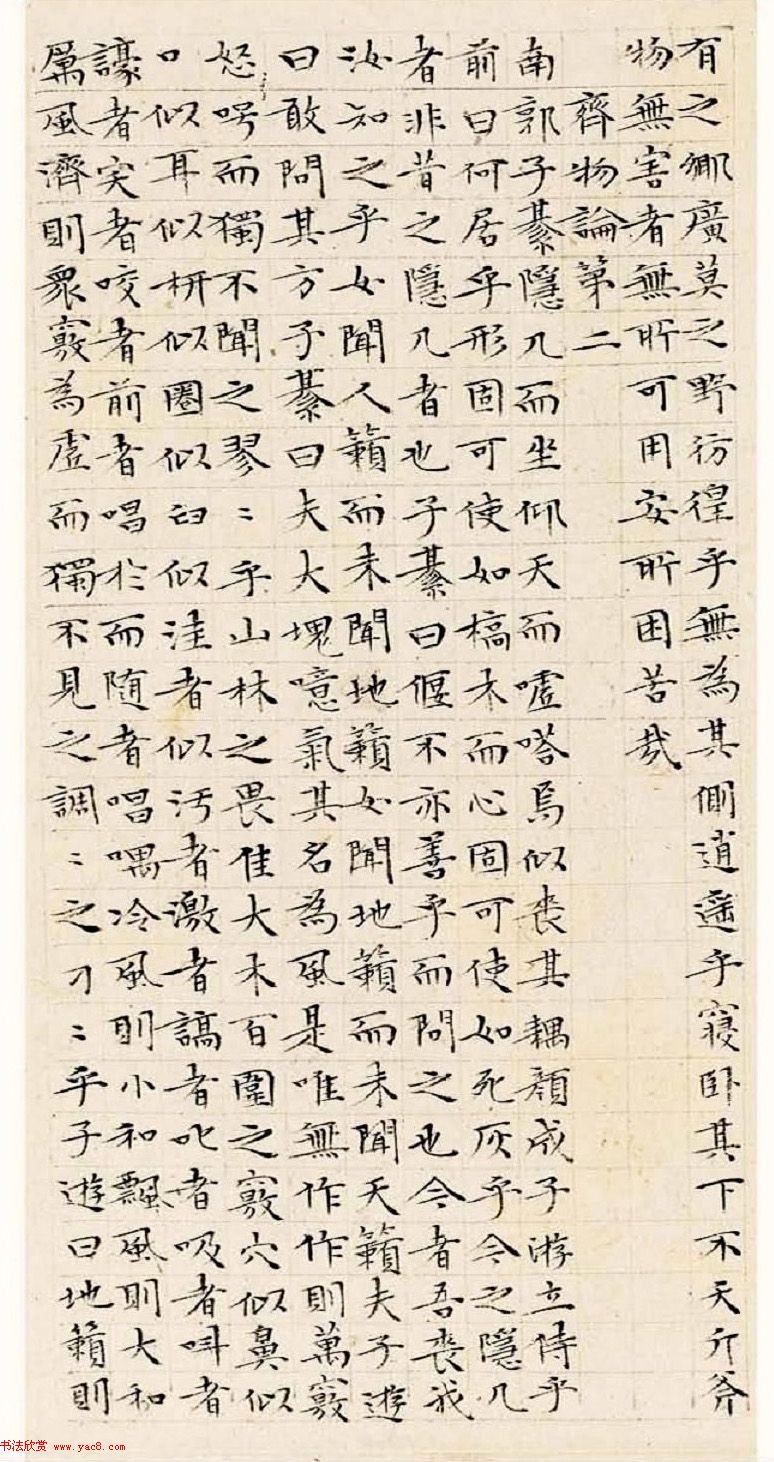 有之鄉廣莫之野彷徨乎無為其側逍遥乎寢卧其下不夭斤斧
物無害者無所可用安所困苦哉
齊物論第二
南郭子綦隱几而坐仰天而噓嗒焉似丧其耦顏成子游立侍乎
前曰何居乎形固可使如槁木而心固可使如死灰乎今之隱几
者非昔之隱几者也子綦曰偃不亦善乎而問之也今者吾丧我
汝知之乎女聞人籟而未聞地籟女聞地籟而未聞天籟夫子遊
曰敢問其方子綦曰夫大塊噫氣其名為風是唯無作作則萬竅
怒呺而獨不聞之翏〻乎山林之畏隹大木百圍之竅穴似鼻似
口似耳似枅似圈似臼似洼者似污者激者謞者叱者吸者叫者
譹者宎者咬者前者唱於而随者唱喁冷風則小和飄風則大和
厲風濟則衆竅為虛而獨不見之調〻之刁〻乎子遊曰地籟則
书法欣赏 www.yac8.com